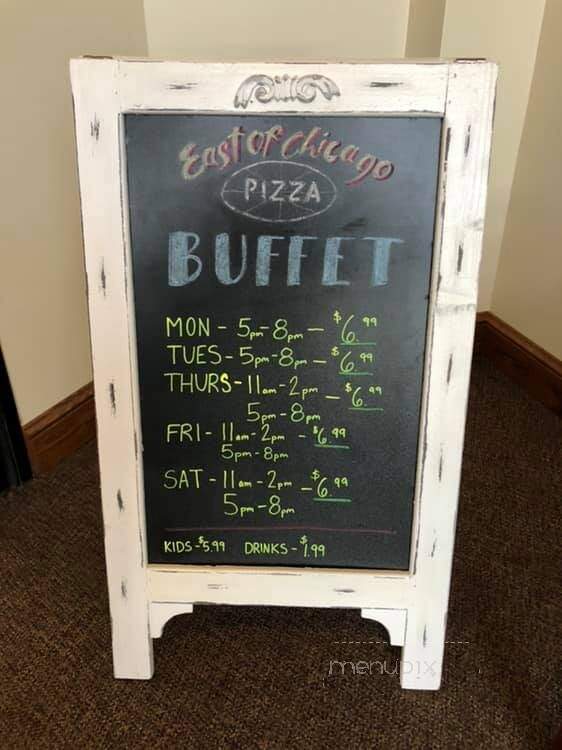 East of Chicago
PIZZA
BUFFET
MON - 5pm-8pm - $6.99
TUES - 5pm-8pm - $6.99
THURS - 11am-2pm - $6.99
5pm-8pm
FRI - 11am-2pm - $6.99
5pm-8pm
SAT - 11am-2pm - $6.99
5pm-8pm
KIDS-$5.99 DRINKS-$1.99
menupix